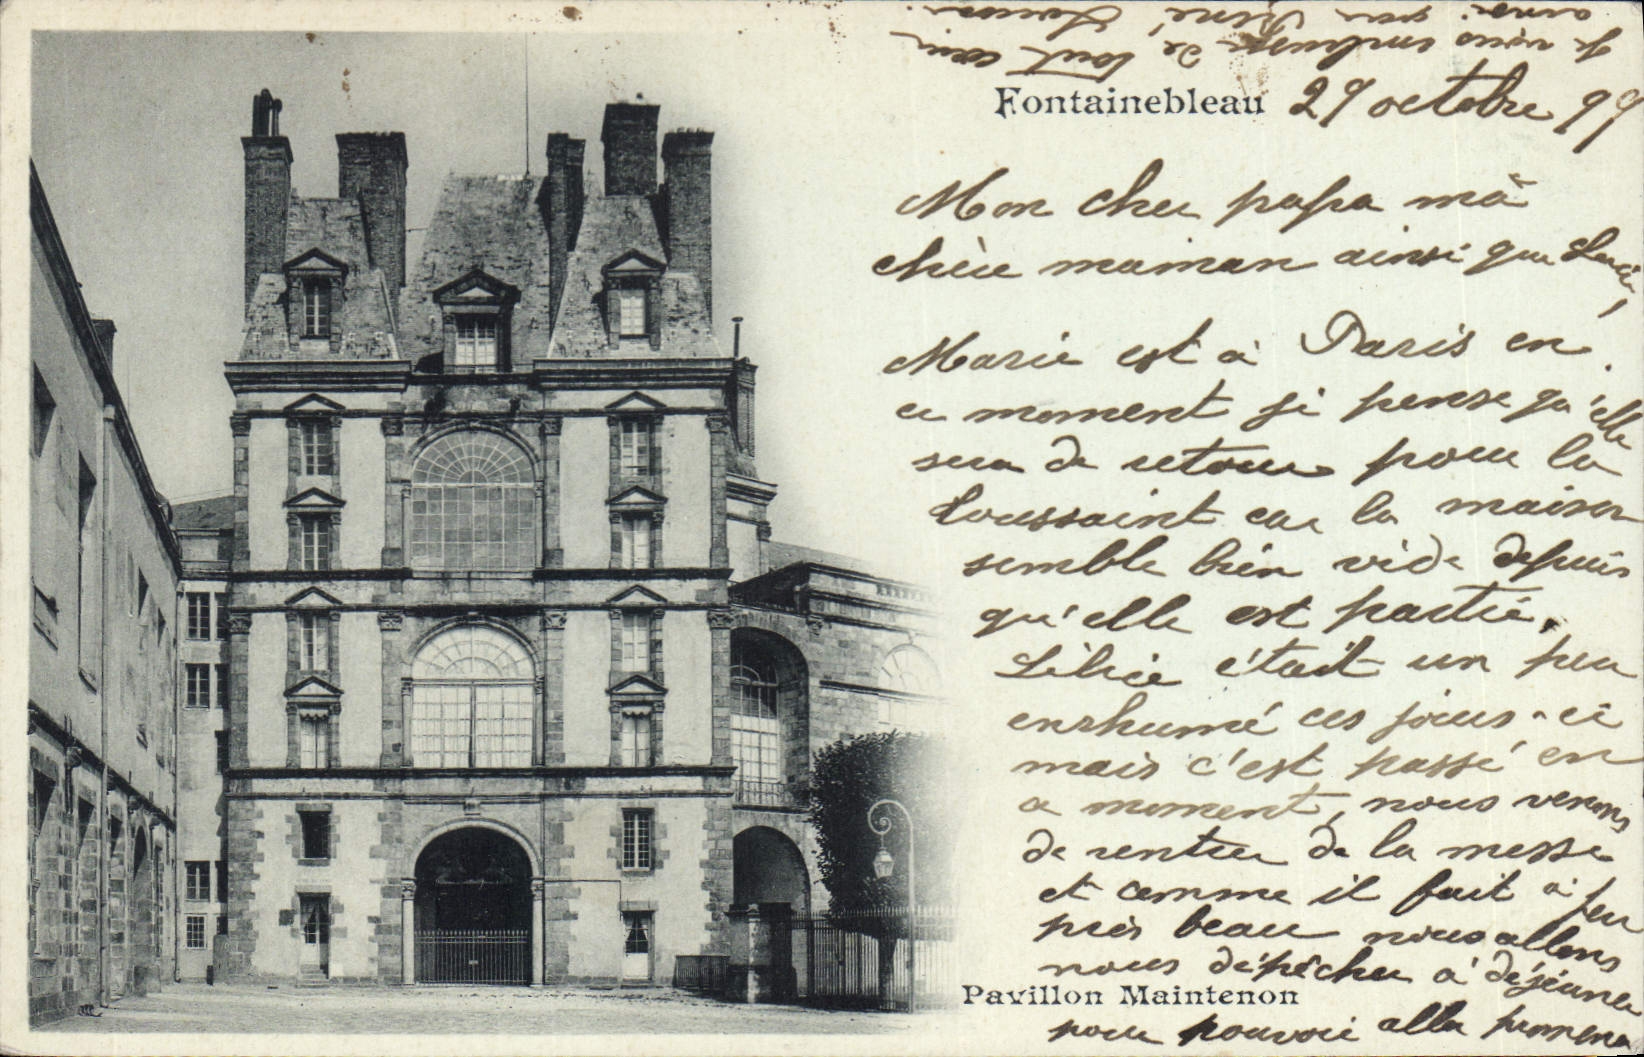 Fontainebleau 29 octobre 99
Mon cher papa ma
chère maman ainsi que Luci,
Marie est à Paris en
ce moment je pense qu'elle
sera de retour pour la
Toussaint car la maison
semble bien vide depuis
qu'elle est partie.
était un peu
enrhumé ces jours-ci
mais c'est passé en
ce moment, nous venons
de rentrer de la messe
et comme il fait à peu
près beau nous allons
nous dépêcher à déjeuner
Pavillon Maintenon
pour pouvoir aller promener
Je vous embrasse de tout cœur
ainsi que René